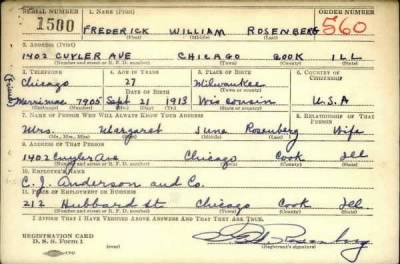 SERIAL NUMBER 1. NAME (Print) ORDER NUMBER
1500 FREDERICK WILLIAM ROSENBERG 560
(First) (Middle) (Last)
2. ADDRESS (Print)
1402 CUYLER AVE CHICAGO COOK ILL
(Number and street or R. F. D. number) (Town) (County) (State)
3. TELEPHONE 4. AGE IN YEARS 5. PLACE OF BIRTH 6. COUNTRY OF CITIZENSHIP
Chicago 27 Milwaukee
DATE OF BIRTH (Town or county)
Merrimac 7905 Sept 21 1913 Wisconsin U.S.A
(Exchange) (Number) (Mo.) (Day) (Yr.) (State or country)
7. NAME OF PERSON WHO WILL ALWAYS KNOW YOUR ADDRESS 8. RELATIONSHIP OF THAT PERSON
Mrs. Margaret June Rosenberg Wife
(Mr., Mrs., Miss) (First) (Middle) (Last)
9. ADDRESS OF THAT PERSON
1402 Cuyler Ave Chicago Cook Ill
(Number and street or R. F. D. number) (Town) (County) (State)
10. EMPLOYER'S NAME
C. J. Anderson and Co.
11. PLACE OF EMPLOYMENT OR BUSINESS
212 Hubbard St Chicago Cook Ill.
(Number and street or R. F. D. number) (Town) (County) (State)
I AFFIRM THAT I HAVE VERIFIED ABOVE ANSWERS AND THAT THEY ARE TRUE.
REGISTRATION CARD
D. S. S. Form 1 (Registrant's signature)
Rosenberg